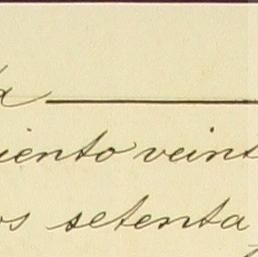 a
iento veint
os setenta